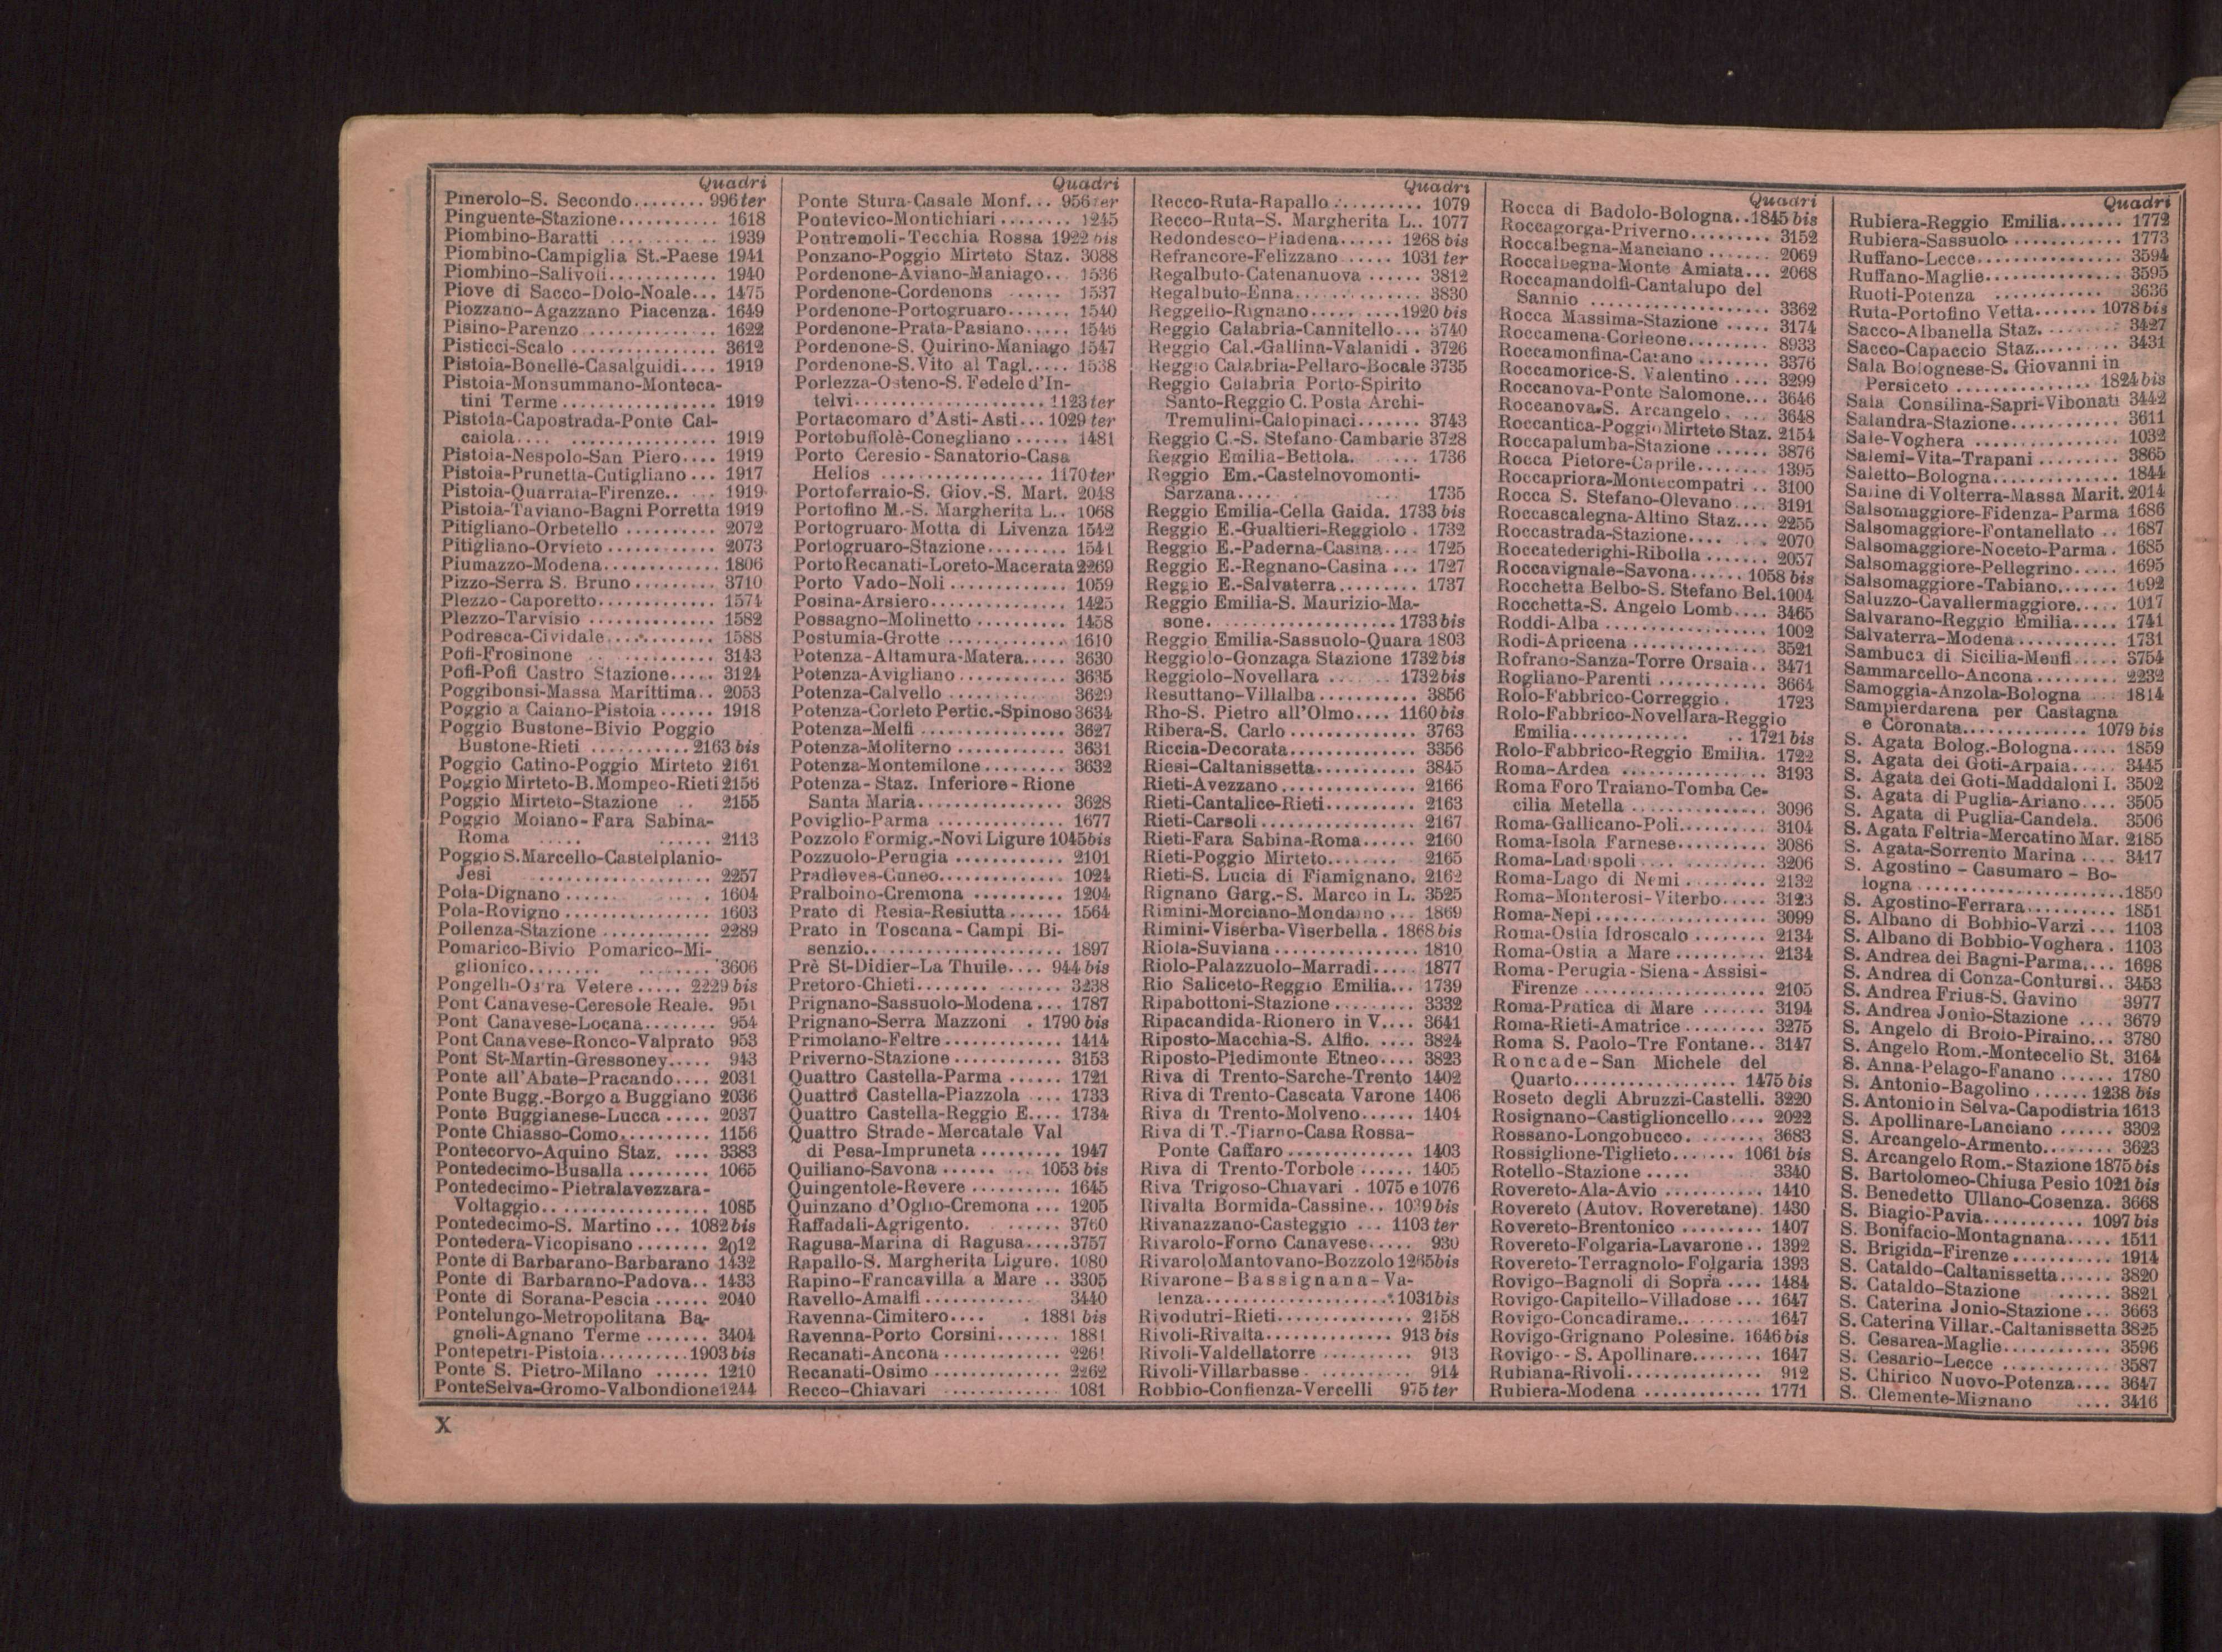 Quadri
Pinerolo-S. Secondo........ 996 ter
Pinguente-Stazione........... 1618
Piombino-Baratti ........... 1939
Piombino-Campiglia St.-Paese 1941
Piombino-Salivoli............ 1940
Piove di Sacco-Dolo-Noale... 1475
Piozzano-Agazzano Piacenza. 1649
Pisino-Parenzo ............. 1622
Pisticci-Scalo ............... 3612
Pistoia-Bonelle-Casalguidi.... 1919
Pistoia-Monsummano-Monteca-
tini Terme ................ 1919
Pistoia-Capostrada-Ponte Cal-
caiola.... ............... 1919
Pistoia-Nespolo-San Piero.... 1919
Pistoia-Prunetta-Cutigliano ... 1917
Pistoia-Quarrata-Firenze.. ... 1919
Pistoia-Taviano-Bagni Porretta 1919
Pitigliano-Orbetello .......... 2072
Pitigliano-Orvieto ............ 2073
Piumazzo-Modena............ 1806
Pizzo-Serra S. Bruno......... 3710
Plezzo-Caporetto............. 1574
Plezzo-Tarvisio .............. 1582
Podresca-Cividale............ 1588
Pofi-Frosinone .. .......... 3143
Pofi-Pofi Castro Stazione..... 3124
Poggibonsi-Massa Marittima.. 2053
Poggio a Caiano-Pistoia ...... 1918
Poggio Bustone-Bivio Poggio
Bustone-Rieti ........... 2163 bis
Poggio Catino-Poggio Mirteto 2161
Poggio Mirteto-B.Mompeo-Rieti 2156
Poggio Mirteto-Stazione .. 2155
Poggio Moiano-Fara Sabina-
Roma ..... ...... 2113
Poggio S.Marcello-Castelplanio-
Jesi ................... 2257
Pola-Dignano ...... .... . 1604
Pola-Rovigno ................ 1603
Pollenza-Stazione ............ 2289
Pomarico-Bivio Pomarico-Mi-
glionico........ ........ 3606
Pongelli-Ostra Vetere ..... 2229 bis
Pont Canavese-Ceresole Reale. 951
Pont Canavese-Locana........ 954
Pont Canavese-Ronco-Valprato 953
Pont St-Martin-Gressoney..... 943
Ponte all'Abate-Pracando.... 2031
Ponte Bugg.-Borgo a Buggiano 2036
Ponte Buggianese-Lucca ..... 2037
Ponte Chiasso-Como.......... 1156
Pontecorvo-Aquino Staz. .... 3383
Pontedecimo-Busalla ......... 1065
Pontedecimo-Pietralavezzara-
Voltaggio.. ................ 1085
Pontedecimo-S. Martino ... 1082 bis
Pontedera-Vicopisano ........ 2012
Ponte di Barbarano-Barbarano 1432
Ponte di Barbarano-Padova.. 1433
Ponte di Sorana-Pescia ...... 2040
Pontelungo-Metropolitana Ba-
gnoli-Agnano Terme ....... 3404
Pontepetri-Pistoia..........1903 bis
Ponte S. Pietro-Milano ...... 1210
PonteSelva-Gromo-Valbondione1244
Quadri
Ponte Stura-Casale Monf... 956 ter
Pontevico-Montichiari ........ 1245
Pontremoli-Tecchia Rossa 1922 bis
Ponzano-Poggio Mirteto Staz. 3088
Pordenone-Aviano-Maniago... 1536
Pordenone-Cordenons ...... 1537
Pordenone-Portogruaro....... 1540
Pordenone-Prata-Pasiano..... 1546
Pordenone-S. Quirino-Maniago 1547
Pordenone-S.Vito al Tagl..... 1538
Porlezza-Osteno-S. Fedele d'In-
telvi.....................1123 ter
Portacomaro d'Asti-Asti... 1029 ter
Portobuffolè-Conegliano ...... 1481
Porto Ceresio-Sanatorio-Casa
Helios ................. 1170 ter
Portoferraio-S. Giov.-S. Mart. 2048
Portofino M.-S. Margherita L.. 1068
Portogruaro-Motta di Livenza 1542
Portogruaro-Stazione......... 1541
Porto Recanati-Loreto-Macerata 2269
Porto Vado-Noli ............. 1059
Posina-Arsiero............... 1425
Possagno-Molinetto .......... 1458
Postumia-Grotte ............. 1610
Potenza-Altamura-Matera..... 3630
Potenza-Avigliano ............ 3635
Potenza-Calvello ............ 3629
Potenza-Corleto Pertic.-Spinoso 3634
Potenza-Melfi ................ 3627
Potenza-Moliterno ............ 3631
Potenza-Montemilone......... 3632
Potenza-Staz. Inferiore-Rione
Santa Maria............... 3628
Poviglio-Parma .............. 1677
Pozzolo Formig.-Novi Ligure 1045bis
Pozzuolo-Perugia ............ 2101
Pradleves-Cuneo.............. 1024
Pralboino-Cremona .......... 1204
Prato di Resia-Resiutta ...... 1564
Prato in Toscana-Campi Bi-
senzio..................... 1897
Prè St-Didier-La Thuile.... 944 bis
Pretoro-Chieti........ ...... 3238
Prignano-Sassuolo-Modena ... 1787
Prignano-Serra Mazzoni . 1790 bis
Primolano-Feltre ............. 1414
Priverno-Stazione ............ 3153
Quattro Castella-Parma ...... 1721
Quattro Castella-Piazzola .... 1733
Quattro Castella-Reggio E.... 1734
Quattro Strade-Mercatale Val
di Pesa-Impruneta ......... 1947
Quiliano-Savona ...... ... 1053 bis
Quingentole-Revere .......... 1645
Quinzano d'Oglio-Cremona ... 1205
Raffadali-Agrigento. ...... 3760
Ragusa-Marina di Ragusa.....3757
Rapallo-S. Margherita Ligure. 1080
Rapino-Francavilla a Mare .. 3305
Ravello-Amalfi ............ 3440
Ravenna-Cimitero.... . 1881 bis
Ravenna-Porto Corsini....... 1881
Recanati-Ancona ............. 2261
Recanati-Osimo .............. 2262
Recco-Chiavari ............. 1081
Quadri
Recco-Ruta-Rapallo .......... 1079
Recco-Ruta-S. Margherita L.. 1077
Redondesco-Piadena...... 1268 bis
Refrancore-Felizzano ..... 1031 ter
Regalbuto-Catenanuova ...... 3812
Regalbuto-Enna.............. 3830
Reggello-Rignano..... ....1920 bis
Reggio Calabria-Cannitello... 3740
Reggio Cal.-Gallina-Valanidi . 3726
Reggio Calabria-Pellaro-Bocale 3735
Reggio Calabria Porto-Spirito
Santo-Reggio C. Posta Archi-
Tremulini-Calopinaci....... 3743
Reggio C.-S. Stefano-Cambarie 3728
Reggio Emilia-Bettola. ..... 1736
Reggio Em.-Castelnovomonti-
Sarzana.... ... 1735
Reggio Emilia-Cella Gaida. 1733 bis
Reggio E.-Gualtieri-Reggiolo . 1732
Reggio E.-Paderna-Casina.... 1725
Reggio E.-Regnano-Casina ... 1727
Reggio E.-Salvaterra......... 1737
Reggio Emilia-S. Maurizio-Ma-
sone.....................1733 bis
Reggio Emilia-Sassuolo-Quara 1803
Reggiolo-Gonzaga Stazione 1732 bis
Reggiolo-Novellara ...... .. 1732 bis
Resuttano-Villalba ........... 3856
Rho-S. Pietro all'Olmo.... 1160 bis
Ribera-S. Carlo .............. 3763
Riccia-Decorata.............. 3356
Riesi-Caltanissetta........... 3845
Rieti-Avezzano ............... 2166
Rieti-Cantalice-Rieti.......... 2163
Rieti-Carsoli ................. 2167
Rieti-Fara Sabina-Roma...... 2160
Rieti-Poggio Mirteto........ 2165
Rieti-S. Lucia di Fiamignano. 2162
Rignano Garg.-S. Marco in L. 3525
Rimini-Morciano-Mondaino ... 1869
Rimini-Viserba-Viserbella . 1868 bis
Riola-Suviana ................ 1810
Riolo-Palazzuolo-Marradi..... 1877
Rio Saliceto-Reggio Emilia... 1739
Ripabottoni-Stazione ......... 3332
Ripacandida-Rionero in V.... 3641
Riposto-Macchia-S. Alfio. .... 3824
Riposto-Piedimonte Etneo.... 3823
Riva di Trento-Sarche-Trento 1402
Riva di Trento-Cascata Varone 1406
Riva di Trento-Molveno...... 1404
Riva di T.-Tiarno-Casa Rossa-
Ponte Caffaro.............. 1403
Riva di Trento-Torbole ...... 1405
Riva Trigoso-Chiavari . 1075 e 1076
Rivalta Bormida-Cassine.. 1039 bis
Rivanazzano-Casteggio ... 1103 ter
Rivarolo-Forno Canavese..... 930
RivaroloMantovano-Bozzolo 1265bis
Rivarone-Bassignana-Va-
lenza....................1031bis
Rivodutri-Rieti............... 2158
Rivoli-Rivalta.............. 913 bis
Rivoli-Valdellatorre .......... 913
Rivoli-Villarbasse. .......... 914
Robbio-Confienza-Vercelli 975 ter
Quadri
Rocca di Badolo-Bologna..1845 bis
Roccagorga-Priverno......... 3152
Roccalbegna-Manciano ....... 2069
Roccalbegna-Monte Amiata... 2068
Roccamandolfi-Cantalupo del
Sannio ................... 3362
Rocca Massima-Stazione ..... 3174
Roccamena-Corleone......... 8933
Roccamonfina-Caiano ........ 3376
Roccamorice-S. Valentino .... 3299
Roccanova-Ponte Salomone... 3646
Roccanova-S. Arcangelo. ... 3648
Roccantica-Poggio Mirteto Staz. 2154
Roccapalumba-Stazione ...... 3876
Rocca Pietore-Caprile........ 1395
Roccapriora-Montecompatri .. 3100
Rocca S. Stefano-Olevano .... 3191
Roccascalegna-Altino Staz.... 2255
Roccastrada-Stazione.... ... 2070
Roccatederighi-Ribolla ....... 2057
Roccavignale-Savona...... 1058 bis
Rocchetta Belbo-S. Stefano Bel.1004
Rocchetta-S. Angelo Lomb.... 3465
Roddi-Alba .................. 1002
Rodi-Apricena ............... 3521
Rofrano-Sanza-Torre Orsaia.. 3471
Rogliano-Parenti ............ 3664
Rolo-Fabbrico-Correggio . 1723
Rolo-Fabbrico-Novellara-Reggio
Emilia............ .. 1721 bis
Rolo-Fabbrico-Reggio Emilia. 1722
Roma-Ardea ................ 3193
Roma Foro Traiano-Tomba Ce-
cilia Metella .............. 3096
Roma-Gallicano-Poli.......... 3104
Roma-Isola Farnese.......... 3086
Roma-Ladispoli .... ......... 3206
Roma-Lago di Nemi ......... 2132
Roma-Monterosi-Viterbo..... 3123
Roma-Nepi.................. 3099
Roma-Ostia Idroscalo ........ 2134
Roma-Ostia a Mare .......... 2134
Roma-Perugia-Siena-Assisi-
Firenze .................... 2105
Roma-Pratica di Mare ....... 3194
Roma-Rieti-Amatrice ......... 3275
Roma S. Paolo-Tre Fontane.. 3147
Roncade-San Michele del
Quarto.................. 1475 bis
Roseto degli Abruzzi-Castelli. 3220
Rosignano-Castiglioncello.... 2022
Rossano-Longobucco. ....... 3683
Rossiglione-Tiglieto....... 1061 bis
Rotello-Stazione ..... 3340
Rovereto-Ala-Avio ........... 1410
Rovereto (Autov. Roveretane). 1430
Rovereto-Brentonico ......... 1407
Rovereto-Folgaria-Lavarone.. 1392
Rovereto-Terragnolo-Folgaria 1393
Rovigo-Bagnoli di Sopra .... 1484
Rovigo-Capitello-Villadose ... 1647
Rovigo-Concadirame.......... 1647
Rovigo-Grignano Polesine. 1646 bis
Rovigo--S. Apollinare........ 1647
Rubiana-Rivoli............... 912
Rubiera-Modena ............. 1771
Quadri
Rubiera-Reggio Emilia....... 1772
Rubiera-Sassuolo ............ 1773
Ruffano-Lecce................ 3594
Ruffano-Maglie............... 3595
Ruoti-Potenza ............ 3636
Ruta-Portofino Vetta....... 1078 bis
Sacco-Albanella Staz. ........ 3427
Sacco-Capaccio Staz......... 3431
Sala Bolognese-S. Giovanni in
Persiceto ............... 1824 bis
Sala Consilina-Sapri-Vibonati 3442
Salandra-Stazione............ 3611
Sale-Voghera ................ 1032
Salemi-Vita-Trapani ......... 3865
Saletto-Bologna.............. 1844
Saline di Volterra-Massa Marit. 2014
Salsomaggiore-Fidenza-Parma 1686
Salsomaggiore-Fontanellato .. 1687
Salsomaggiore-Noceto-Parma . 1685
Salsomaggiore-Pellegrino..... 1695
Salsomaggiore-Tabiano....... 1692
Saluzzo-Cavallermaggiore..... 1017
Salvarano-Reggio Emilia..... 1741
Salvaterra-Modena ........... 1731
Sambuca di Sicilia-Menfi ..... 3754
Sammarcello-Ancona ......... 2232
Samoggia-Anzola-Bologna ... 1814
Sampierdarena per Castagna
e Coronata.............. 1079 bis
S. Agata Bolog.-Bologna..... 1859
S. Agata dei Goti-Arpaia..... 3445
S. Agata dei Goti-Maddaloni I. 3502
S. Agata di Puglia-Ariano.... 3505
S. Agata di Puglia-Candela. 3506
S. Agata Feltria-Mercatino Mar. 2185
S. Agata-Sorrento Marina .... 3417
S. Agostino - Casumaro - Bo-
logna .......................1850
S. Agostino-Ferrara.......... 1851
S. Albano di Bobbio-Varzi ... 1103
S. Albano di Bobbio-Voghera . 1103
S. Andrea dei Bagni-Parma.... 1698
S. Andrea di Conza-Contursi.. 3453
S. Andrea Frius-S. Gavino 3977
S. Andrea Jonio-Stazione .... 3679
S. Angelo di Brolo-Piraino... 3780
S. Angelo Rom.-Montecelio St. 3164
S. Anna-Pelago-Fanano ...... 1780
S. Antonio-Bagolino ...... 1238 bis
S. Antonio in Selva-Capodistria 1613
S. Apollinare-Lanciano ...... 3302
S. Arcangelo-Armento........ 3623
S. Arcangelo Rom.-Stazione 1875 bis
S. Bartolomeo-Chiusa Pesio 1021 bis
S. Benedetto Ullano-Cosenza. 3668
S. Biagio-Pavia........... 1097 bis
S. Bonifacio-Montagnana..... 1511
S. Brigida-Firenze ........... 1914
S. Cataldo-Caltanissetta...... 3820
S. Cataldo-Stazione ...... 3821
S. Caterina Jonio-Stazione ... 3663
S. Caterina Villar.-Caltanissetta 3825
S. Cesarea-Maglie............ 3596
S. Cesario-Lecce ............ 3587
S. Chirico Nuovo-Potenza.... 3647
S. Clemente-Mignano .... 3416
X